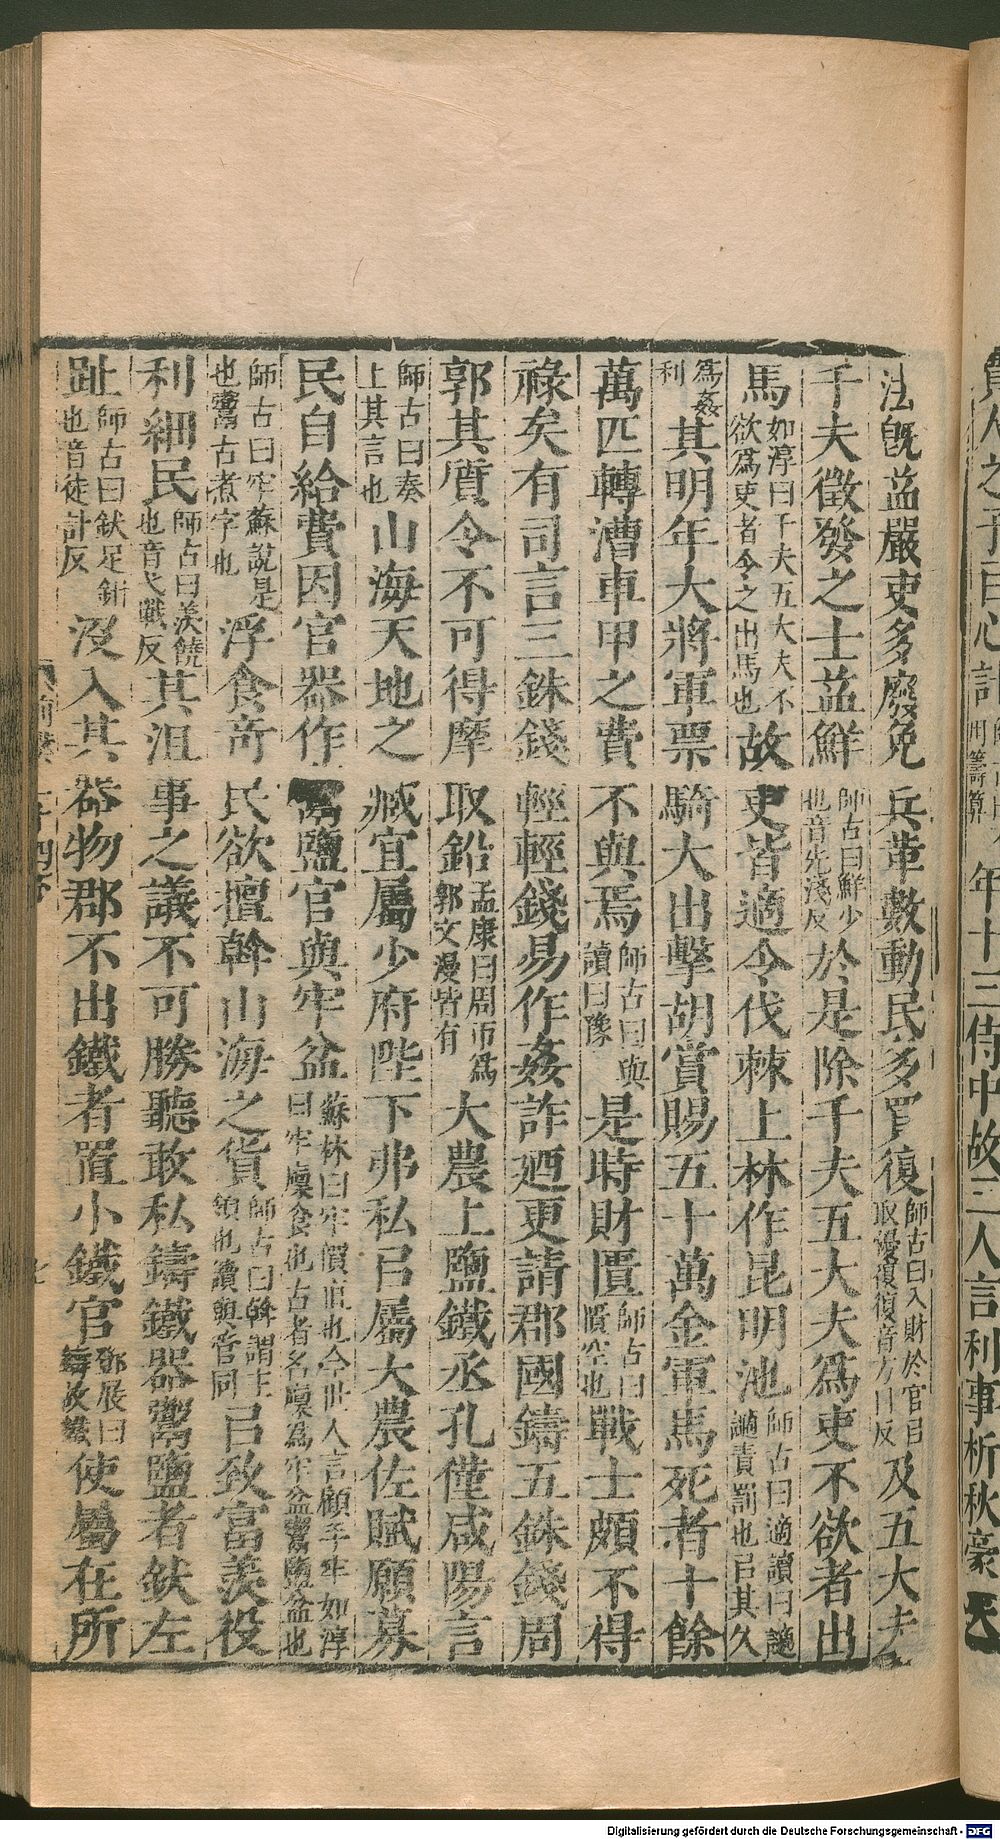 法旣益嚴吏多廢免兵革數動民多買復師古曰入財於官㠯取優復復音方目反及五大夫
千夫徵發之士益鮮師古曰鮮少也音先淺反於是除千夫五大夫爲吏不欲者出
馬如淳曰千夫五大夫不欲爲吏者令之出馬也故吏皆適令伐棘上林作昆明池師古曰適讀曰謫謫責罰也㠯其久
爲姦利其明年大將軍票騎大出擊胡賞賜五十萬金軍馬死者十餘
萬匹轉漕車甲之費不與焉師古曰與讀曰豫是時財匱師古曰匱空也戰士頗不得
祿矣有司言三銖錢輕輕錢易作姦詐迺更請郡國鑄五銖錢周
郭其質令不可得摩取鉛孟康曰周帀爲郭文漫皆有大農上鹽鐵丞孔僅咸陽言
師古曰奏上其言也山海天地之臧宜屬少府陛下弗私㠯屬大農佐賦願募
民自給費因官器作鬻鹽官與牢盆蘇林曰牢價直也今世人言顧手牢如淳曰牢廩食也古者名廩爲牢盆鬻鹽盆也
師古曰牢蘇說是也鬻古煮字也浮食奇民欲擅斡山海之貨師古曰斡謂主領也讀與管同㠯致富羨役
利細民師古曰羨饒也音弋戰反其沮事之議不可勝聽敢私鑄鐵器鬻鹽者釱左
趾師古曰釱足鉗也音徒計反沒入其器物郡不出鐵者置小鐵官鄧展曰鑄故鐵使屬在所
年十三侍中故三人言利事析秋豪矣
Digitalisierung gefördert durch die Deutsche Forschungsgemeinschaft - DFG